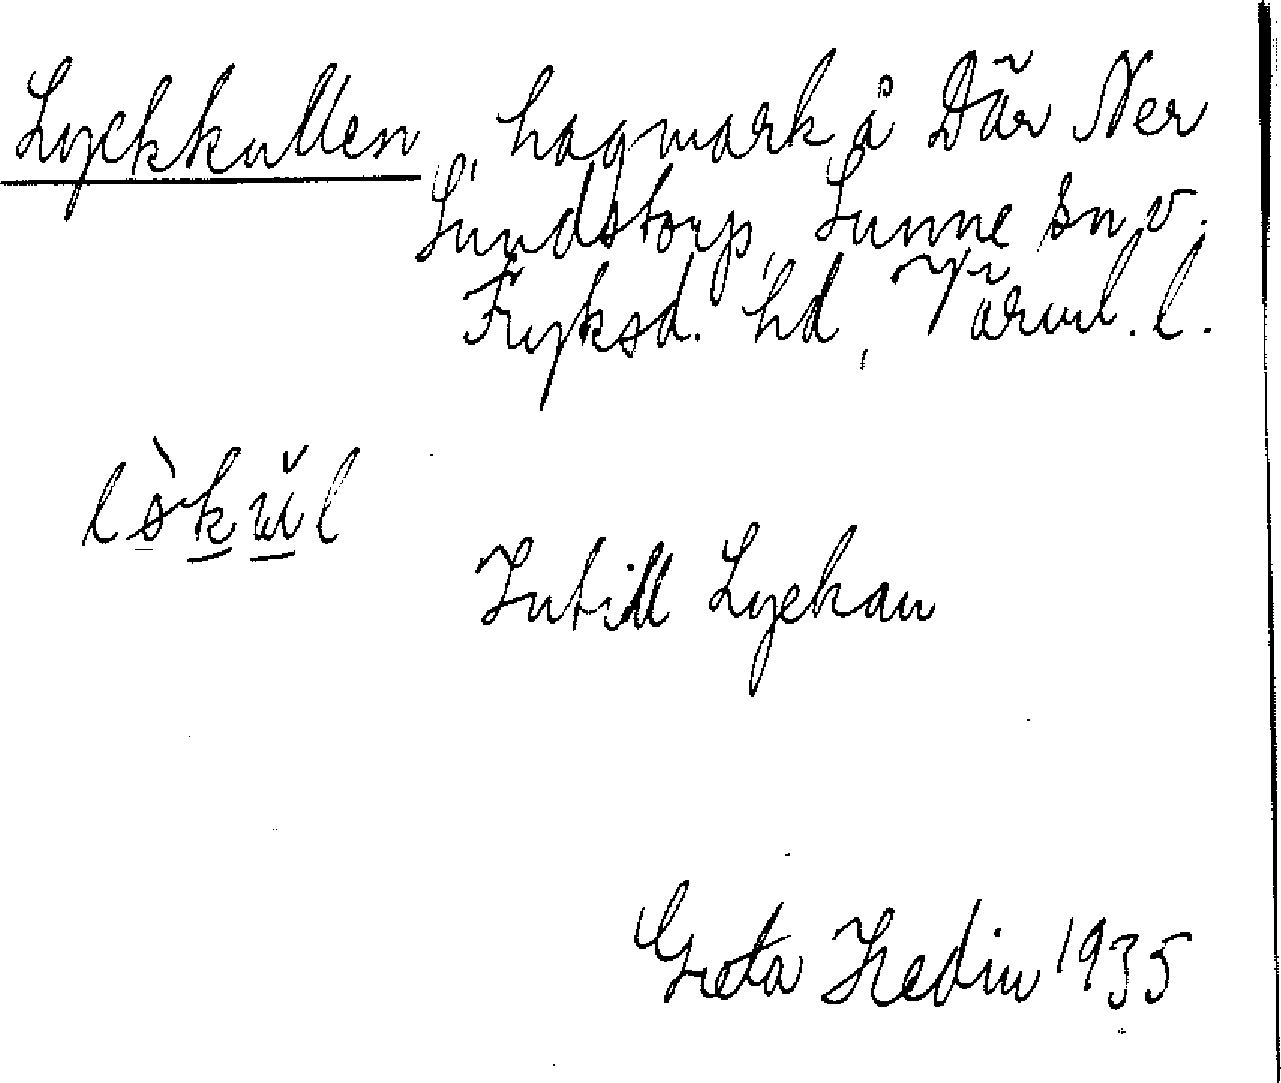 Lyckkullen, hagmark å Där Ner
Sundstorp, Sunne sn, v.
Fryksd. hd, Värml. l.
Intill Lyckan
Greta Hedin 1935